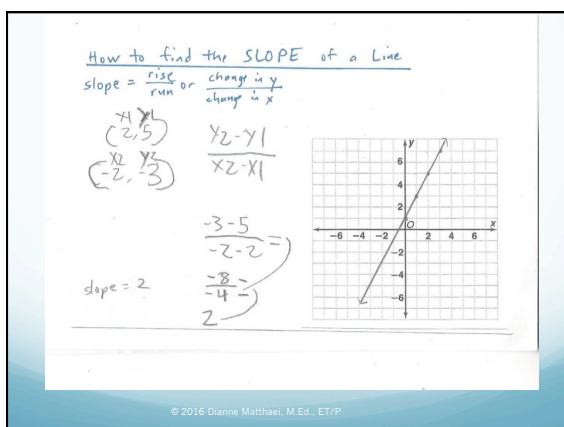 How to find the SLOPE of a Line
slope = rise/run or change in y/change in x
x1 y1
(2, 5)
x2 y2
(-2, -3)
y2-y1
x2-x1
-3-5
-2-2 =
-8
-4 =
2
slope = 2
y
6
4
2
O
x
-6 -4 -2 2 4 6
-2
-4
-6
© 2016 Dianne Matthaei, M.Ed., ET/P